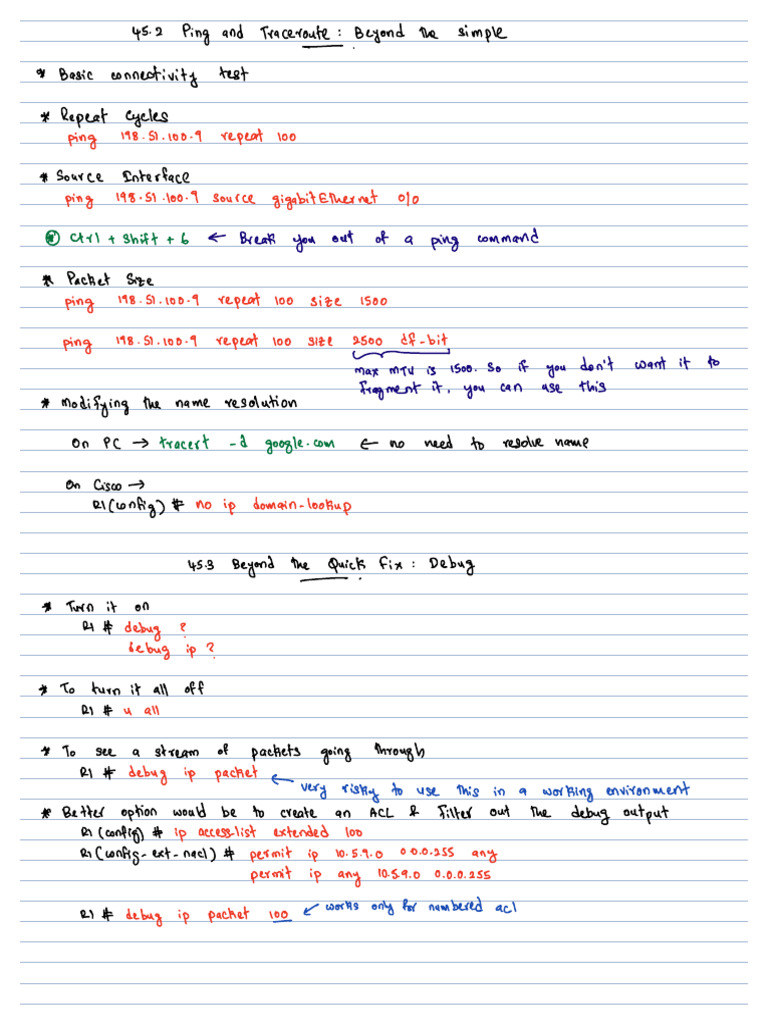 45.2 Ping and Traceroute : Beyond the simple
* Basic connectivity test
* Repeat cycles
ping 198.51.100.9 repeat 100
* Source Interface
ping 198.51.100.9 source gigabitEthernet 0/0
* Ctrl + Shift + 6 ← Break you out of a ping command
* Packet Size
ping 198.51.100.9 repeat 100 size 1500
ping 198.51.100.9 repeat 100 size 2500 df-bit
max MTU is 1500. So if you don't want it to
fragment it, you can use this
* Modifying the name resolution
On PC → tracert -d google.com ← no need to resolve name
On Cisco →
R1(config) # no ip domain-lookup
45.3 Beyond the Quick Fix : Debug
* Turn it on
R1 # debug ?
debug ip ?
* To turn it all off
R1 # u all
* To see a stream of packets going through
R1 # debug ip packet ← very risky to use this in a working environment
* Better option would be to create an ACL & filter out the debug output
R1 (config) # ip access-list extended 100
R1 (config-ext-nacl) # permit ip 10.5.9.0 0.0.0.255 any
permit ip any 10.5.9.0 0.0.0.255
R1 # debug ip packet 100 ← works only for numbered acl